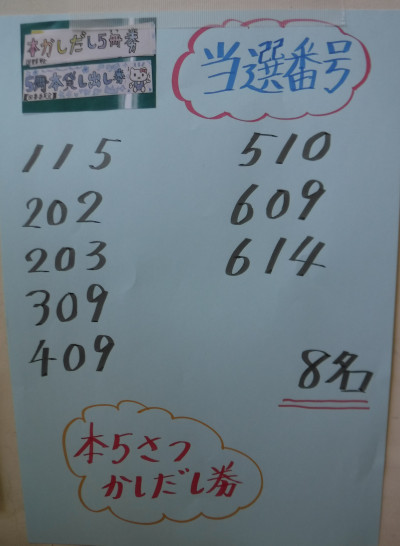 本かしだし5冊券
5冊本貸し出し券
当選番号
115
202
203
309
409
510
609
614
8名
本5さつ
かしだし券